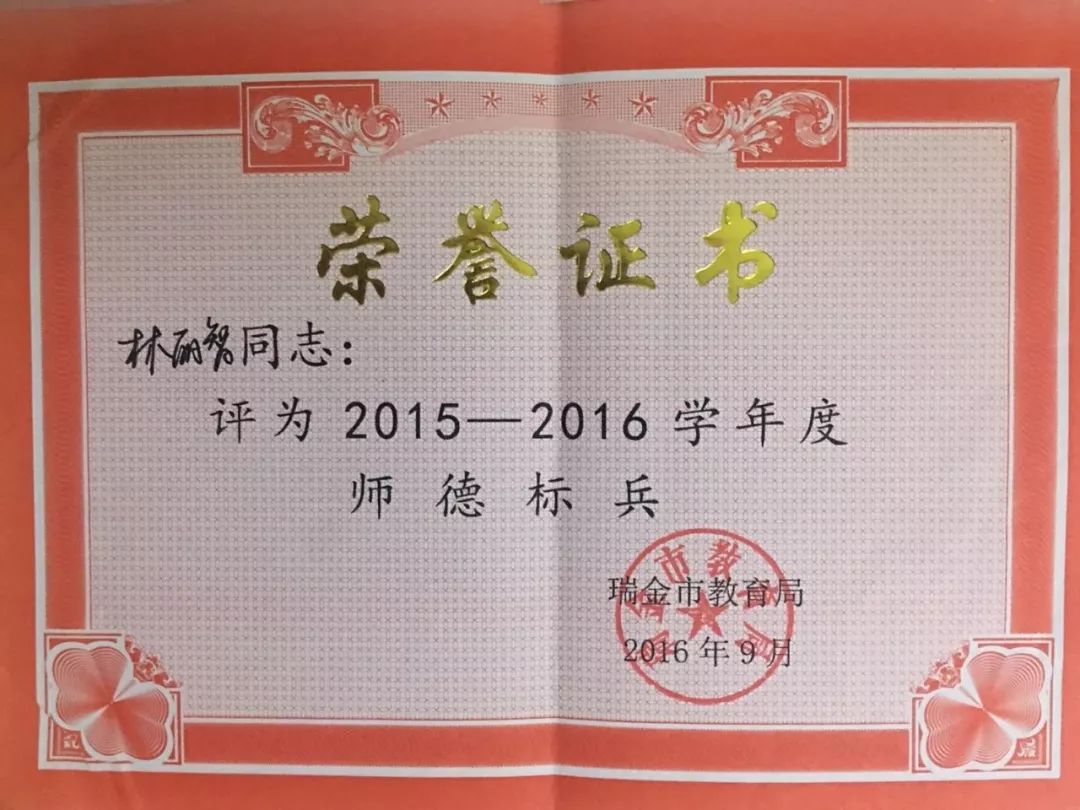 荣誉证书
林丽智同志：
评为2015—2016学年度
师德标兵
瑞金市教育局
2016年9月